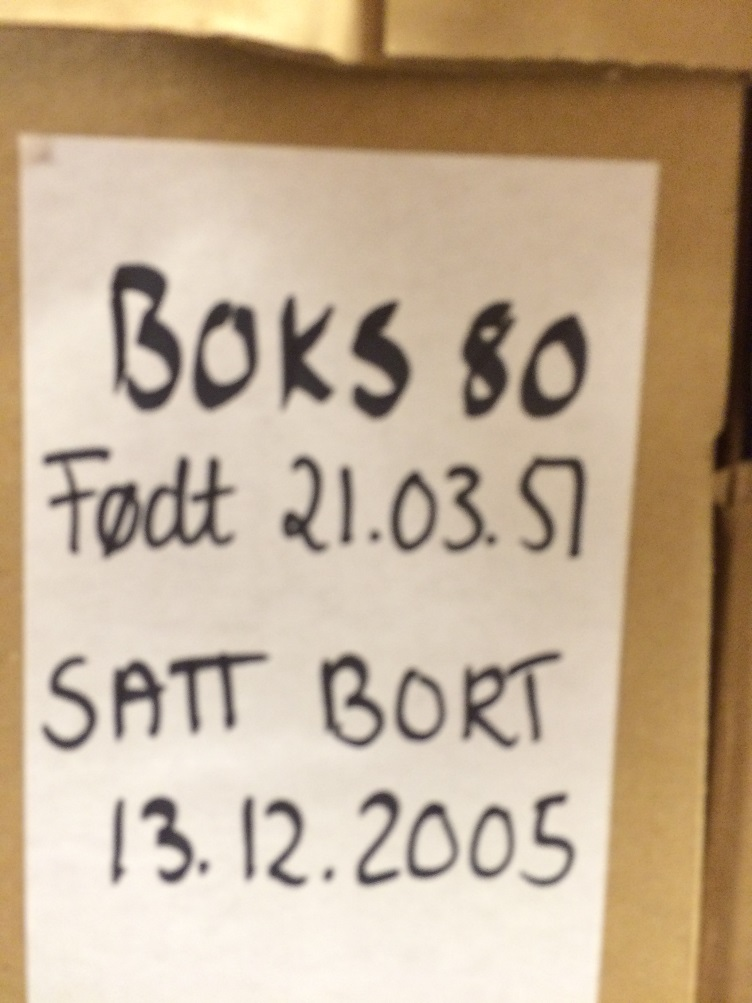 BOKS 80
Født 21.03.51
SATT BORT
13.12.2005